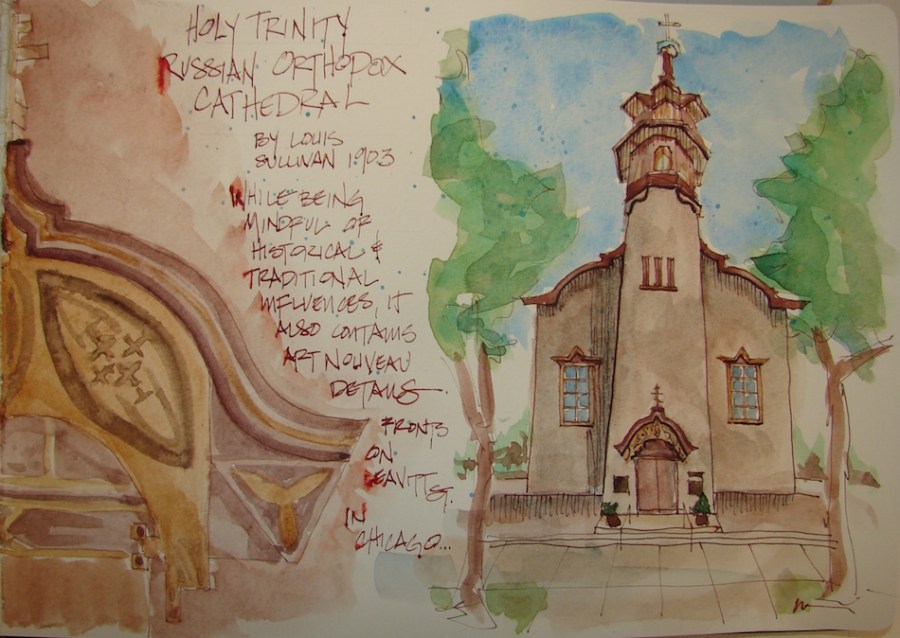 HOLY TRINITY
RUSSIAN ORTHODOX
CATHEDRAL
BY LOUIS
SULLIVAN 1903
WHILE BEING
MINDFUL OF
HISTORICAL &
TRADITIONAL
INFLUENCES, IT
ALSO CONTAINS
ART NOUVEAU
DETAILS
FRONTS
ON
LEAVITT ST.
IN
CHICAGO...